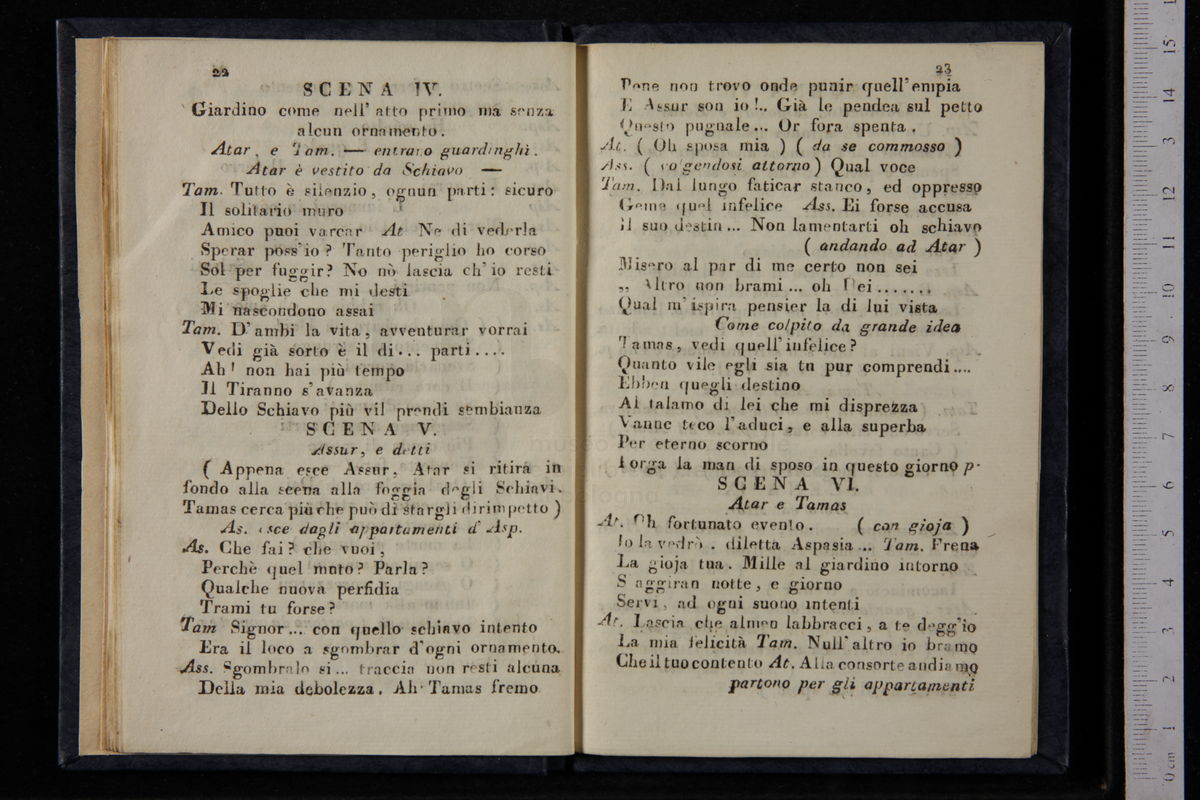 22
SCENA IV.
Giardino come nell' atto primo ma senza
alcun ornamento.
Atar, e Tam. — entrano guardinghi.
Atar è vestito da Schiavo —
Tam. Tutto è silenzio, ognun partì: sicuro
Il solitario muro
Amico puoi varcar At Ne di vederla
Sperar poss'io? Tanto periglio ho corso
Sol per fuggir? No nò lascia ch'io resti
Le spoglie che mi desti
Mi nascondono assai
Tam. D'ambi la vita, avventurar vorrai
Vedi già sorto è il di... parti....
Ah! non hai più tempo
Il Tiranno s'avanza
Dello Schiavo più vil prendi sembianza
SCENA V.
Assur, e detti
( Appena esce Assur, Atar si ritira in
fondo alla scena alla foggia degli Schiavi.
Tamas cerca più che può di stargli dirimpetto )
As. esce dagli appartamenti d' Asp.
As. Che fai? che vuoi,
Perchè quel moto? Parla?
Qualche nuova perfidia
Trami tu forse?
Tam Signor... con quello schiavo intento
Era il loco a sgombrar d'ogni ornamento.
Ass. Sgombralo si... traccia non resti alcuna
Della mia debolezza. Ah Tamas fremo
23
Pene non trovo onde punir quell'empia
E Assur son io!.. Già le pendea sul petto
Questo pugnale... Or fora spenta.
At. ( Oh sposa mia ) ( da se commosso )
Ass. ( volgendosi attorno ) Qual voce
Tam. Dal lungo faticar stanco, ed oppresso
Geme quel infelice Ass. Ei forse accusa
Il suo destin... Non lamentarti oh schiavo
( andando ad Atar )
Misero al par di me certo non sei
„ Altro non brami... oh Dei.......
Qual m'ispira pensier la di lui vista
Come colpito da grande idea
Tamas, vedi quell'infelice?
Quanto vile egli sia tu pur comprendi....
Ebben quegli destino
Al talamo di lei che mi disprezza
Vanne teco l'aduci, e alla superba
Per eterno scorno
Porga la man di sposo in questo giorno p.
SCENA VI.
Atar e Tamas
At. Oh fortunato evento. ( con gioja )
Io la vedrò. diletta Aspasia... Tam. Frena
La gioja tua. Mille al giardino intorno
S aggiran notte, e giorno
Servi, ad ogni suono intenti
At. Lascia che almen labbracci, a te degg'io
La mia felicità Tam. Null'altro io bramo
Che il tuo contento At. Alla consorte andiamo
partono per gli appartamenti